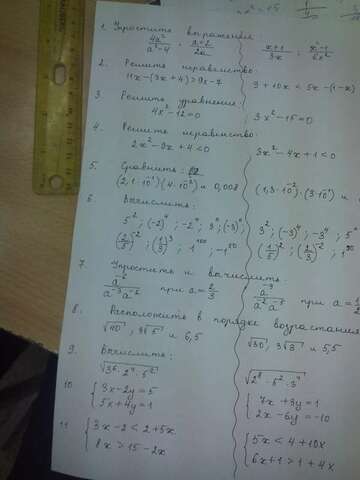 1. Упростите выражения:
4a²/(a²-4) · (a+2)/2a     (x+1)/3x : (x²-1)/6x²
2. Решить неравенство:
11x-(3x+4)>9x-7     3+10x < 5x-(1-x)
3. Решить уравнения:
4x²-12=0     3x²-15=0
4. Решить неравенство:
2x²-9x+4<0     3x²-4x+1<0
5. Сравнить:
(2,1·10⁻¹)(4·10⁻²) и 0,008     (1,3·10⁻²)·(3·10⁻¹) и
6. Вычислить:
5²; (-2)⁴; -2⁴; 3⁰; (-3)³;     3²; (-3)⁴; -3⁴; 5⁰
(2/5)⁻²; (1/3)³; 1¹⁰⁰; -1¹⁰⁰     (1/5)²; (2/3)⁻²; 1⁹⁰
7. Упростить и вычислить:
a⁻⁶/(a⁻³a⁻⁶) при a=2/3     a⁻³/(a⁻²a⁻⁵) при a=1/2
8. Расположите в порядке возрастания
√40, 3√5 и 6,5     √30, 3√3 и 5,5
9. Вычислить:
√(3⁶·2⁴·5²)     √(2⁸·5²·3⁴)
10 {3x-2y=5     {7x+3y=1
5x+4y=1     2x-6y=-10
11 {3x-2<2+5x     {5x<4+10x
8x>15-2x     6x+1>1+4x